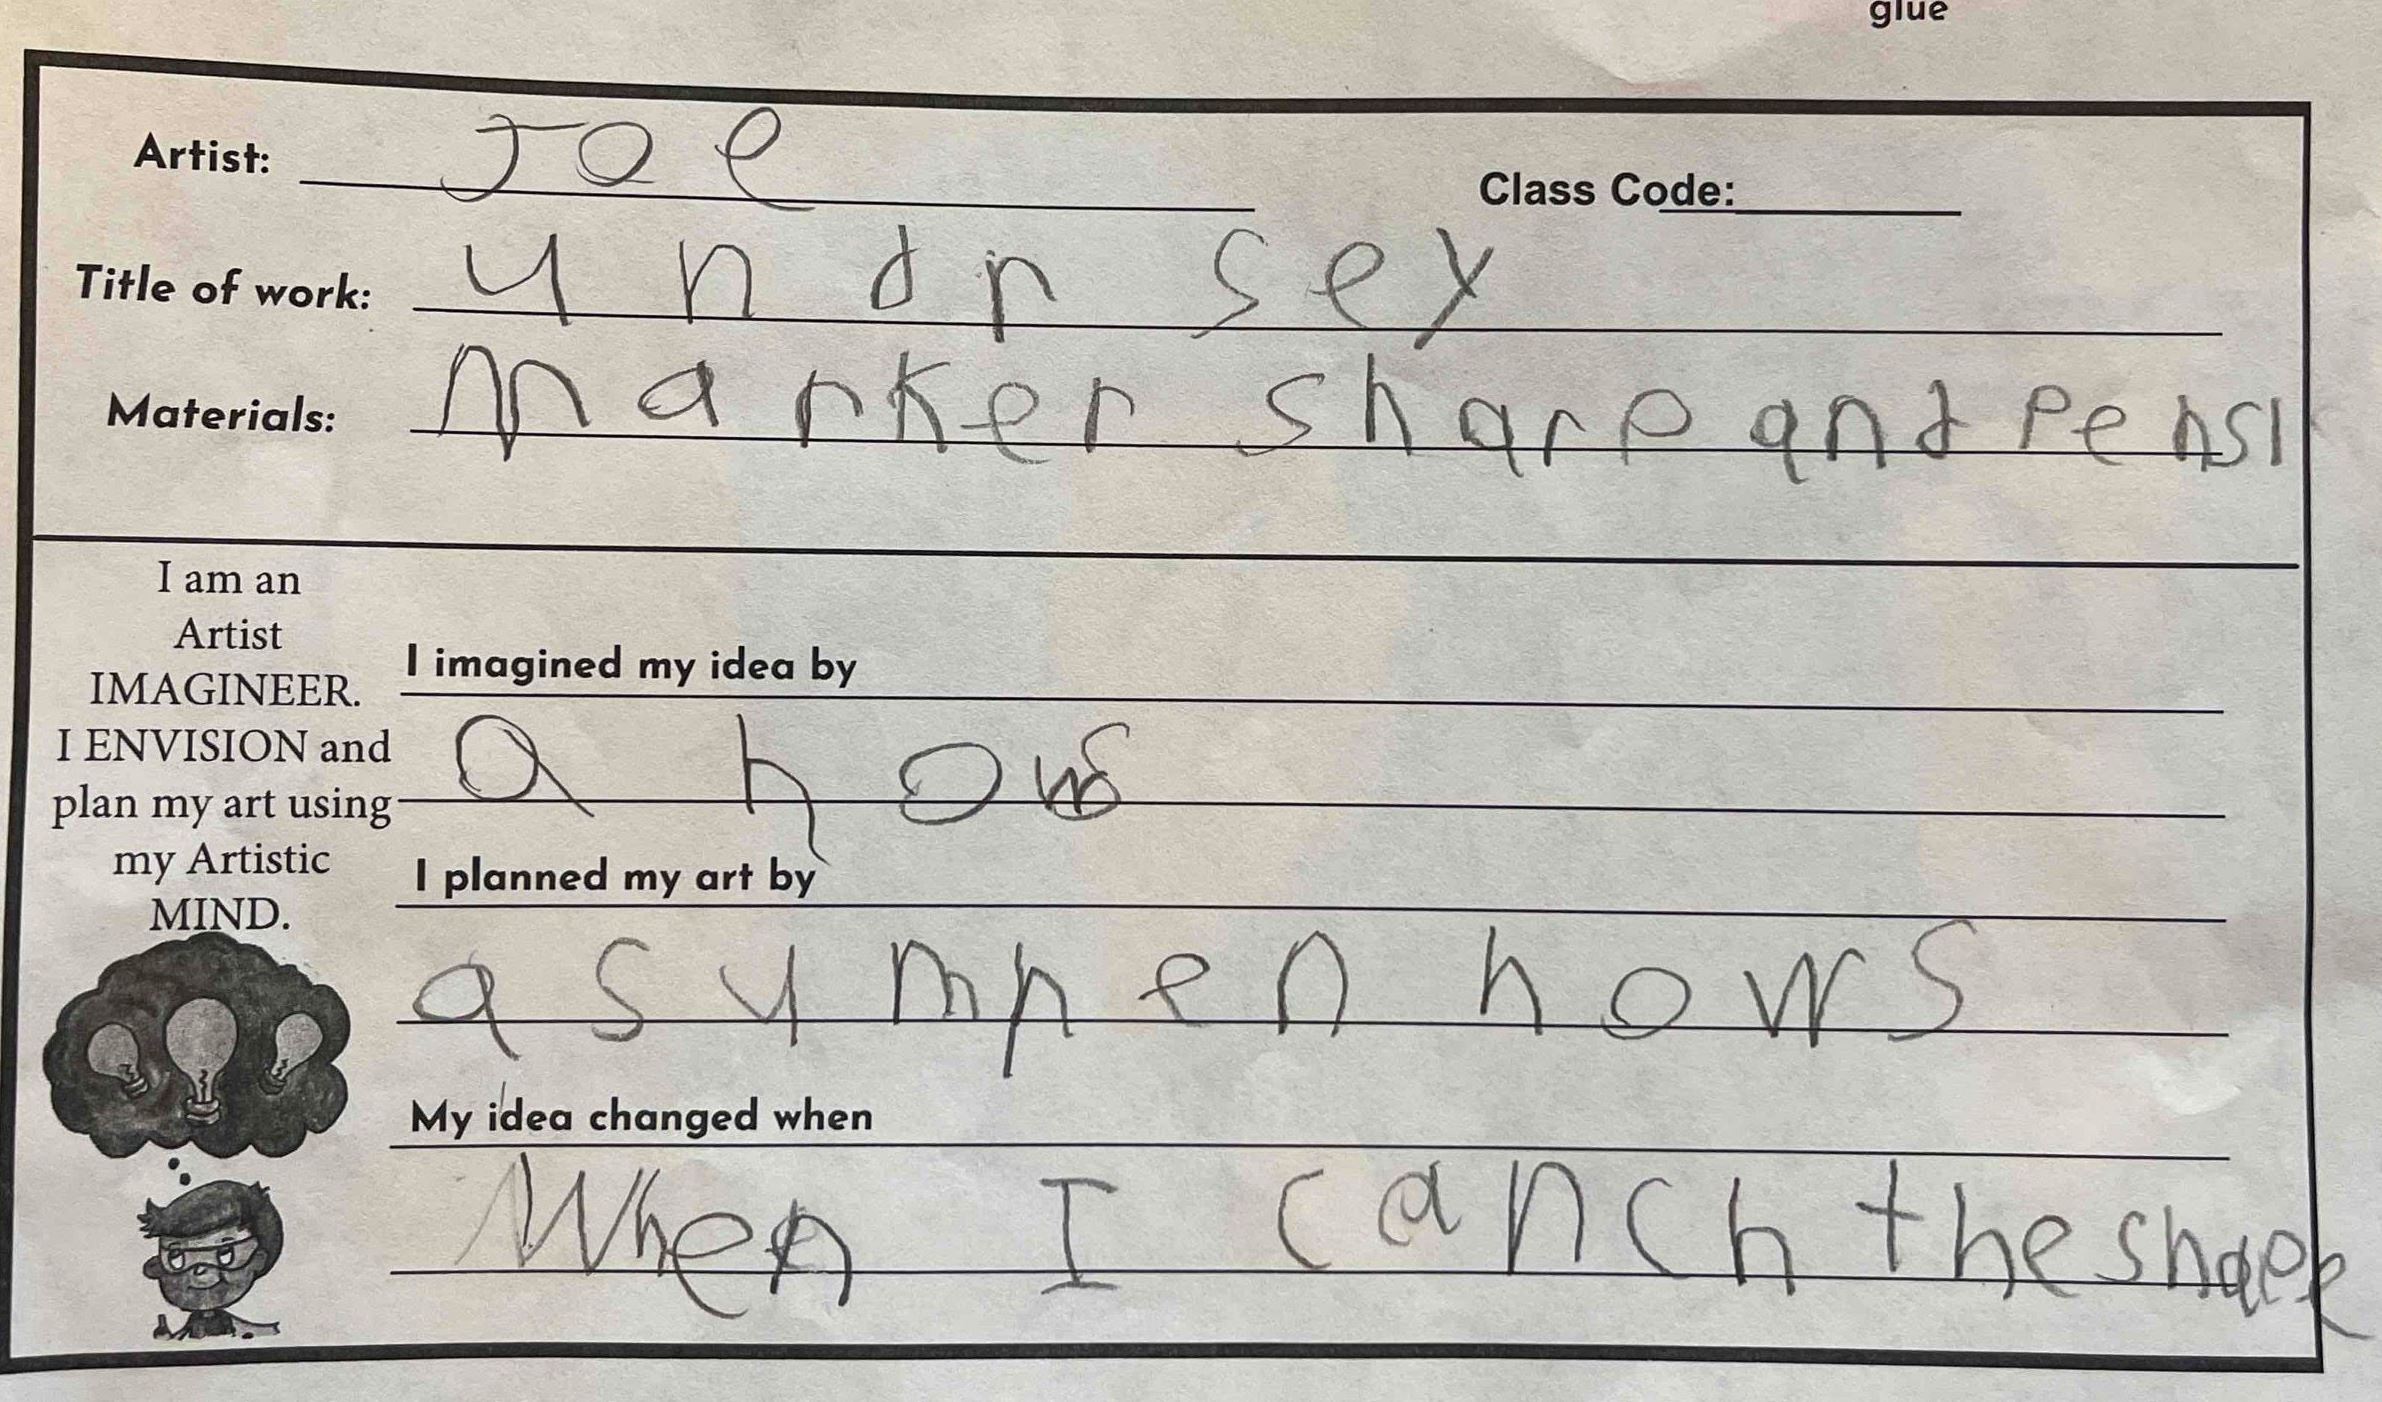 glue
Artist: Joe
Class Code:
Title of work: undr sey
Materials: marker sharp and pensl
I am an
Artist
IMAGINEER.
I ENVISION and
plan my art using
my Artistic
MIND.
I imagined my idea by
a hows
I planned my art by
a sumpen hows
My idea changed when
When I canch the shape